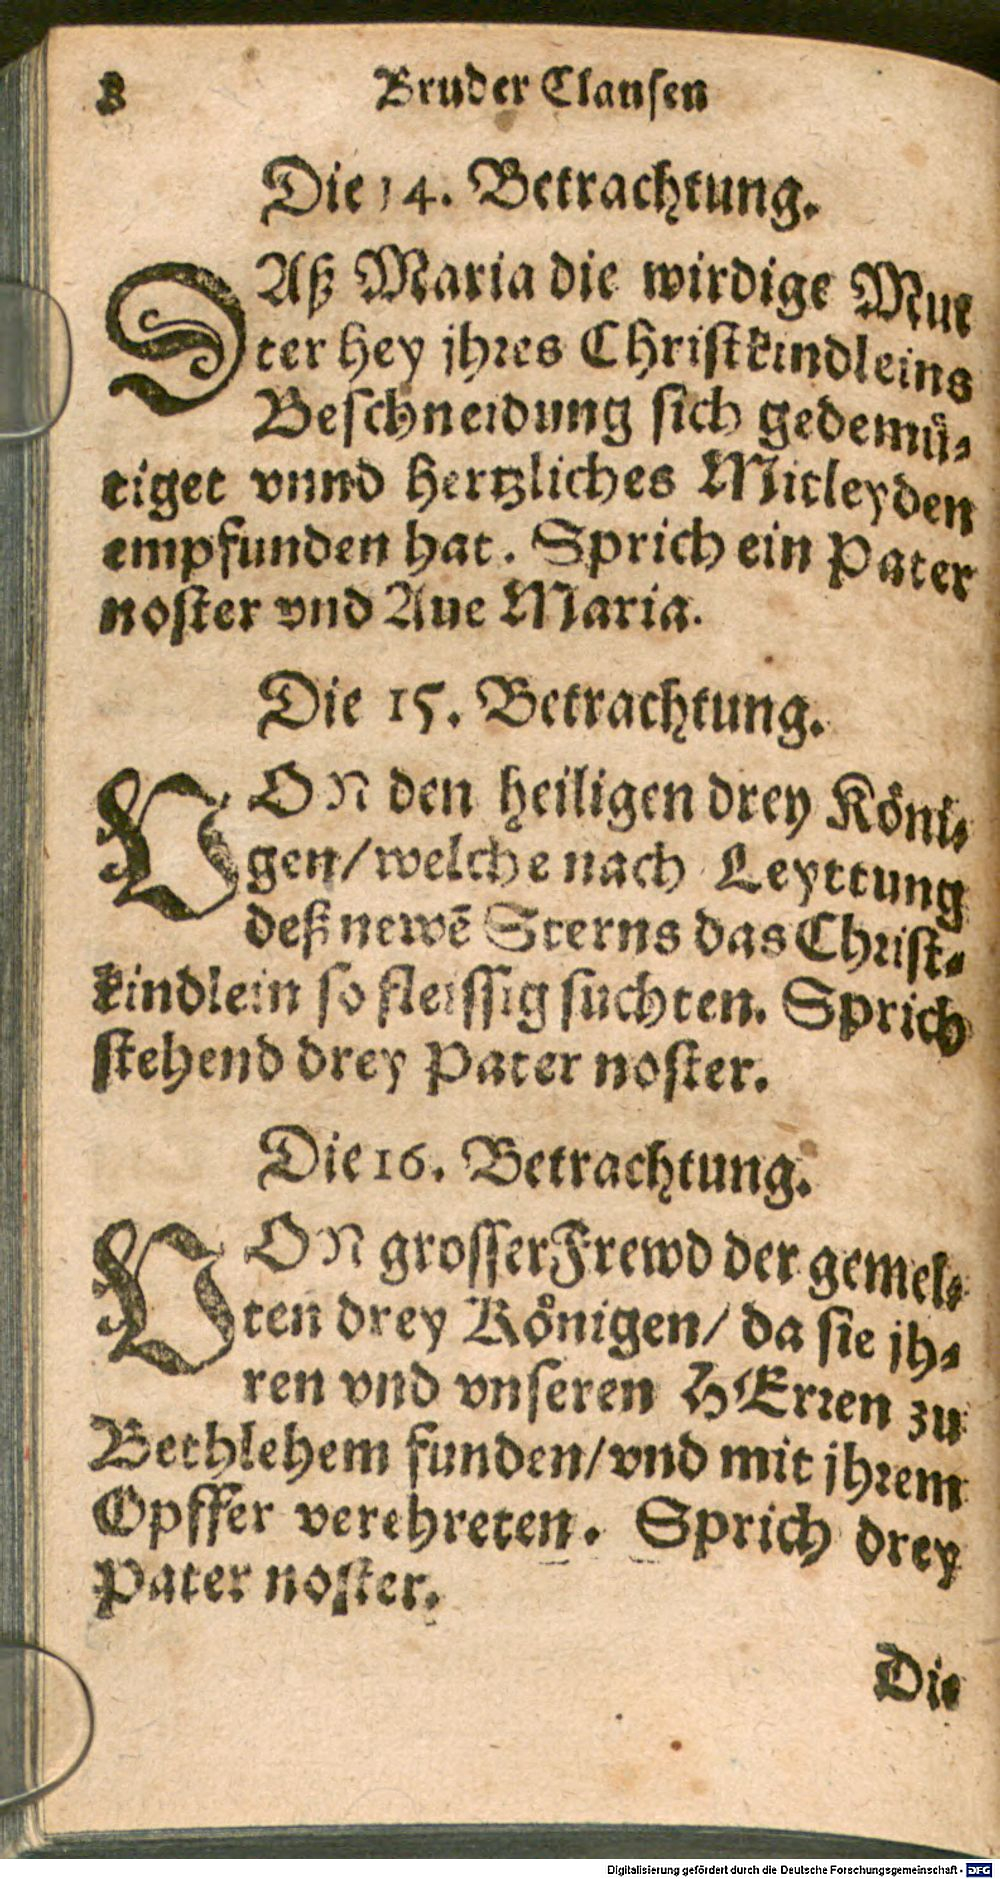 8 Bruder Clausen
Die 14. Betrachtung.
DAß Maria die wirdige Mut
ter hey jhres Christkindleins
Beschneidung sich gedemü⸗
tiget vnnd hertzliches Mitleyden
empfunden hat. Sprich ein Pater
noster vnd Aue Maria.
Die 15. Betrachtung.
VON den heiligen drey Köni⸗
gen/ welche nach Leyttung
deß newē Sterns das Christ⸗
kindlein so fleissig suchten. Sprich
stehend drey Pater noster.
Die 16. Betrachtung.
VON grosser Frewd der gemel⸗
ten drey Königen/ da sie jh⸗
ren vnd vnseren HErren zu
Bethlehem funden/ vnd mit jhrem
Opffer verehreten. Sprich drey
Pater noster.
Die
Digitalisierung gefördert durch die Deutsche Forschungsgemeinschaft - DFG